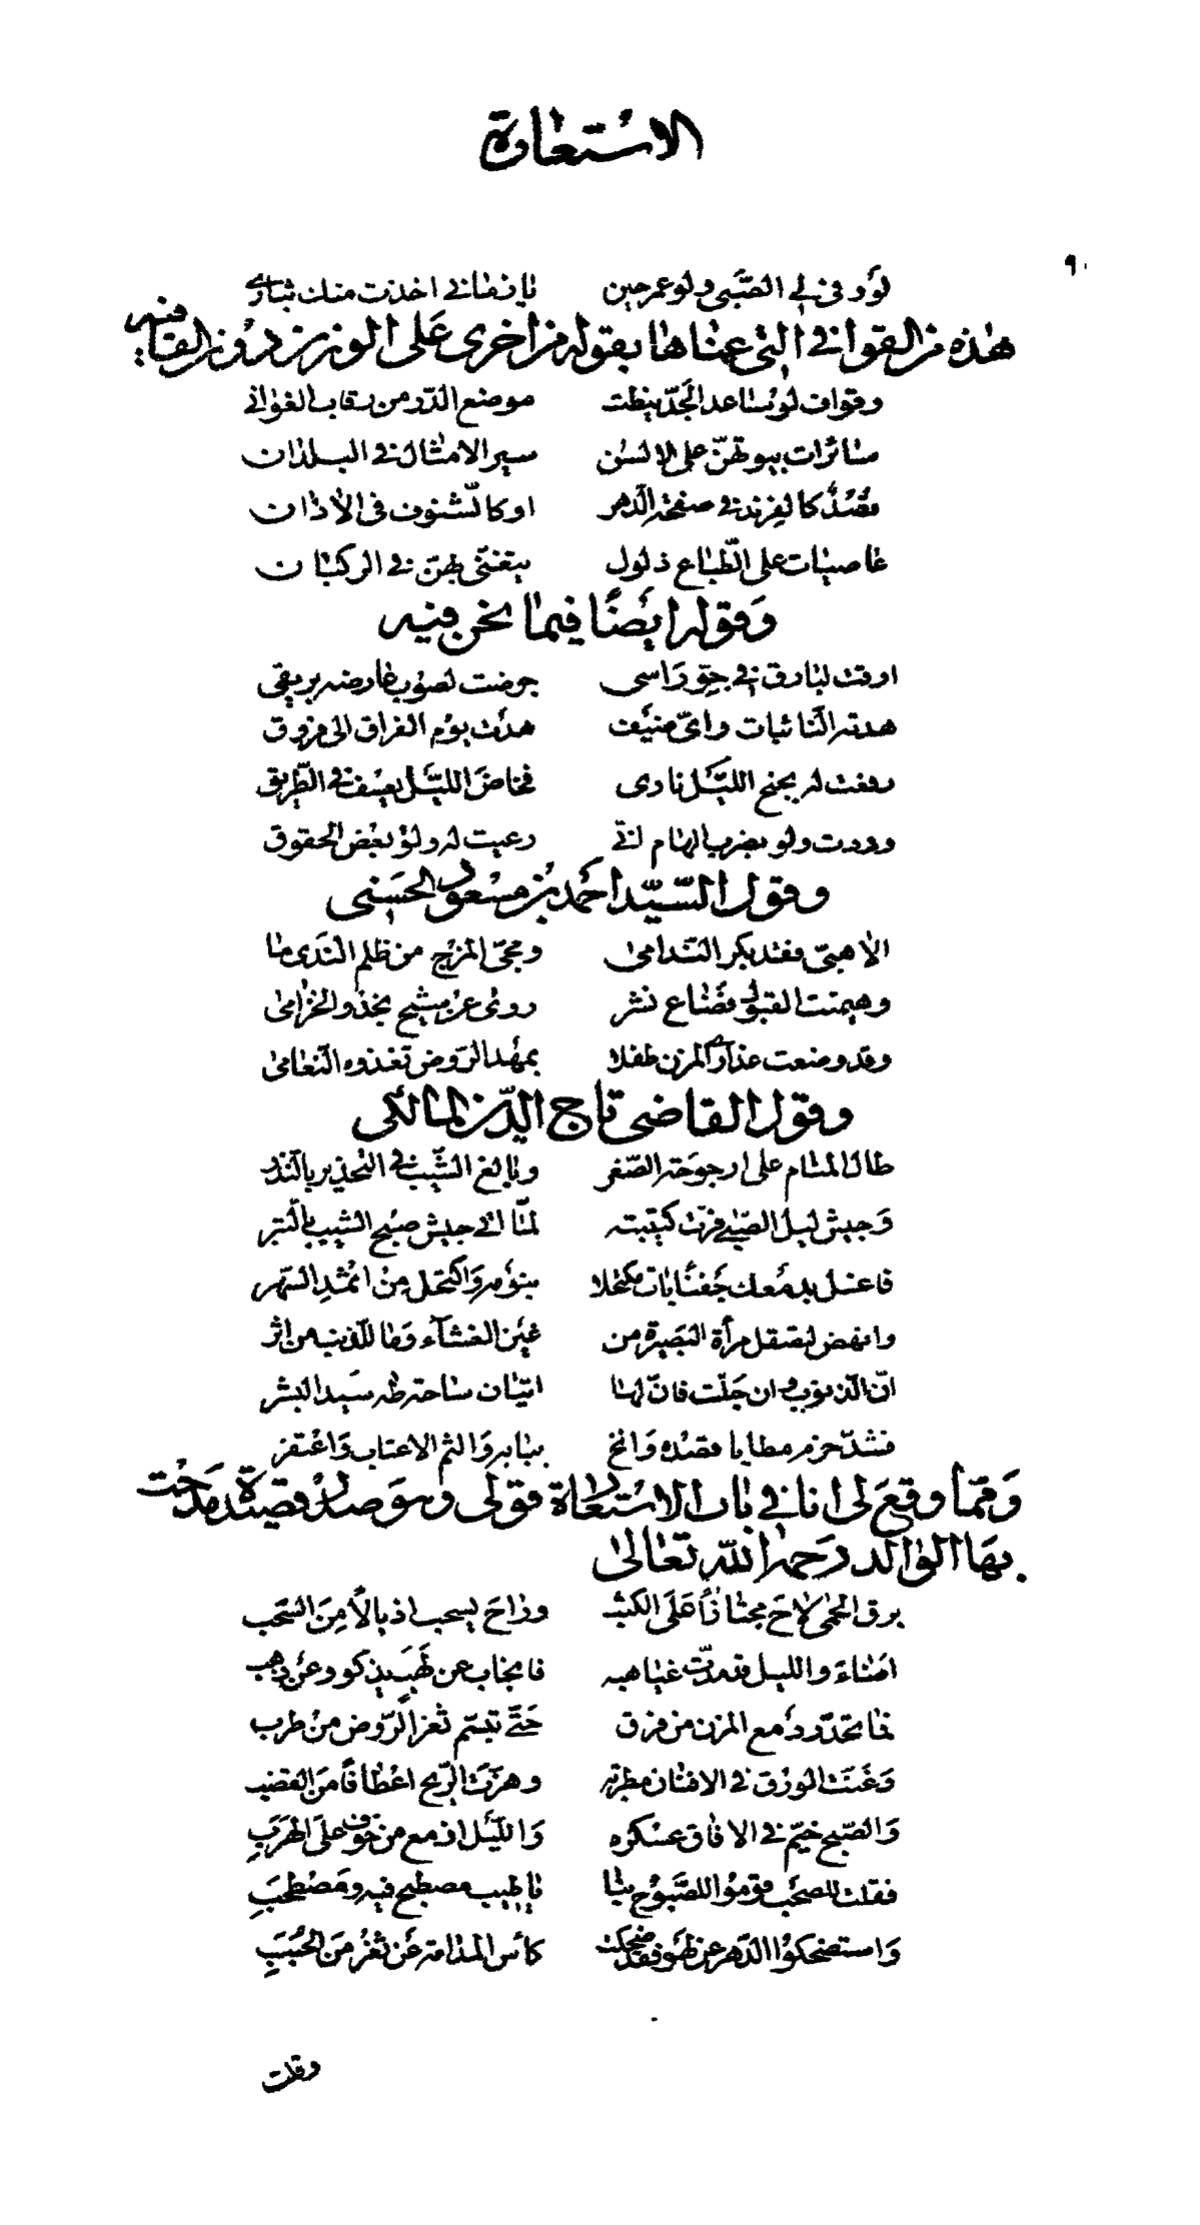 الاستعارة
٩٠
لو وفى لي الصبى ولو عمر حين يا زماني اخذت منك بثاري
هذه من القوافي التي عناها بقوله من اخرى على الوزن دون القافيه
وقواف لو يساعد الجد نيطت موضع الدر من رقاب الغواني
سائرات بيوتهن على الالسن سير الامثال في البلدان
مقصد كالفرند في صفحة الدهر او كالشنوف في الاذان
عاصيات على الطباع ذلول يتغنى بهن في الركبان
وقوله ايضا فيما نحن فيه
ارقت لبارق في جو راسى جرضت لصوب عارضه بريقى
هدته النائبات واى ضيف هدت يوم الفراق الى فروق
رفعت له بجنح الليل نارى فخاض الليل يعسف في الطريق
ووددت ولو بضرب الهام انى رعيت له ولو بعض الحقوق
وقول السيد احمد بن مسعود الحسنى
الا هبى فقد بكر الندامى ومج المزج من ظلم الندى ما
وهيمنت القبول فضاع نشر روى عن شيح نجد والخزامى
وقد وضعت عذارى المزن طفلا بمهد الروض تغذوه النعامى
وقول القاضى تاج الدين المالكى
طال المنام على ارجوحة الصغر وبالغ الشيب في التحذير بالنذر
وجيش ليل الصبى فرت كتيبته لما اتى جيش صبح الشيب بالتبر
فاغسل بدمعك جفنا بات مكتحلا بنوم واكتحل من اثمد السهر
وانهض لصقل مرأة البصيرة من غين الغشاء وما للذنب من اثر
ان الذنوب وان جلت فان لها اتيان ساحة طه سيد البشر
فشد حزم مطايا قصده وانخ ببابه والثم الاعتاب واعتفر
ومما وقع لى انا في باب الاستعارة قولى وهو صدر قصيدة مدحت
بها الوالد رحمه الله تعالى
برق الحمى لاح مجتازا على الكثب وراح يسحب اذيالا من السحب
اضاء والليل قد مدت غياهبه فانجاب عن لهب يذكو وعن ذهب
فما تحدر دمع المزن من فرق حتى تبسم ثغر الروض من طرب
وغنت الورق في الافنان مطربة وهزت الريح اعطافا من القضب
والصبح خيم في الافاق عسكره والليل ازمع من خوف على الهرب
فقلت للصحب قوموا للصبوح بنا يا طيب مصطبح فيه ومصطحب
واستضحكوا الدهر عن لهو فقد ضحكت كأس المدامة عن ثغر من الحبب
وقلت